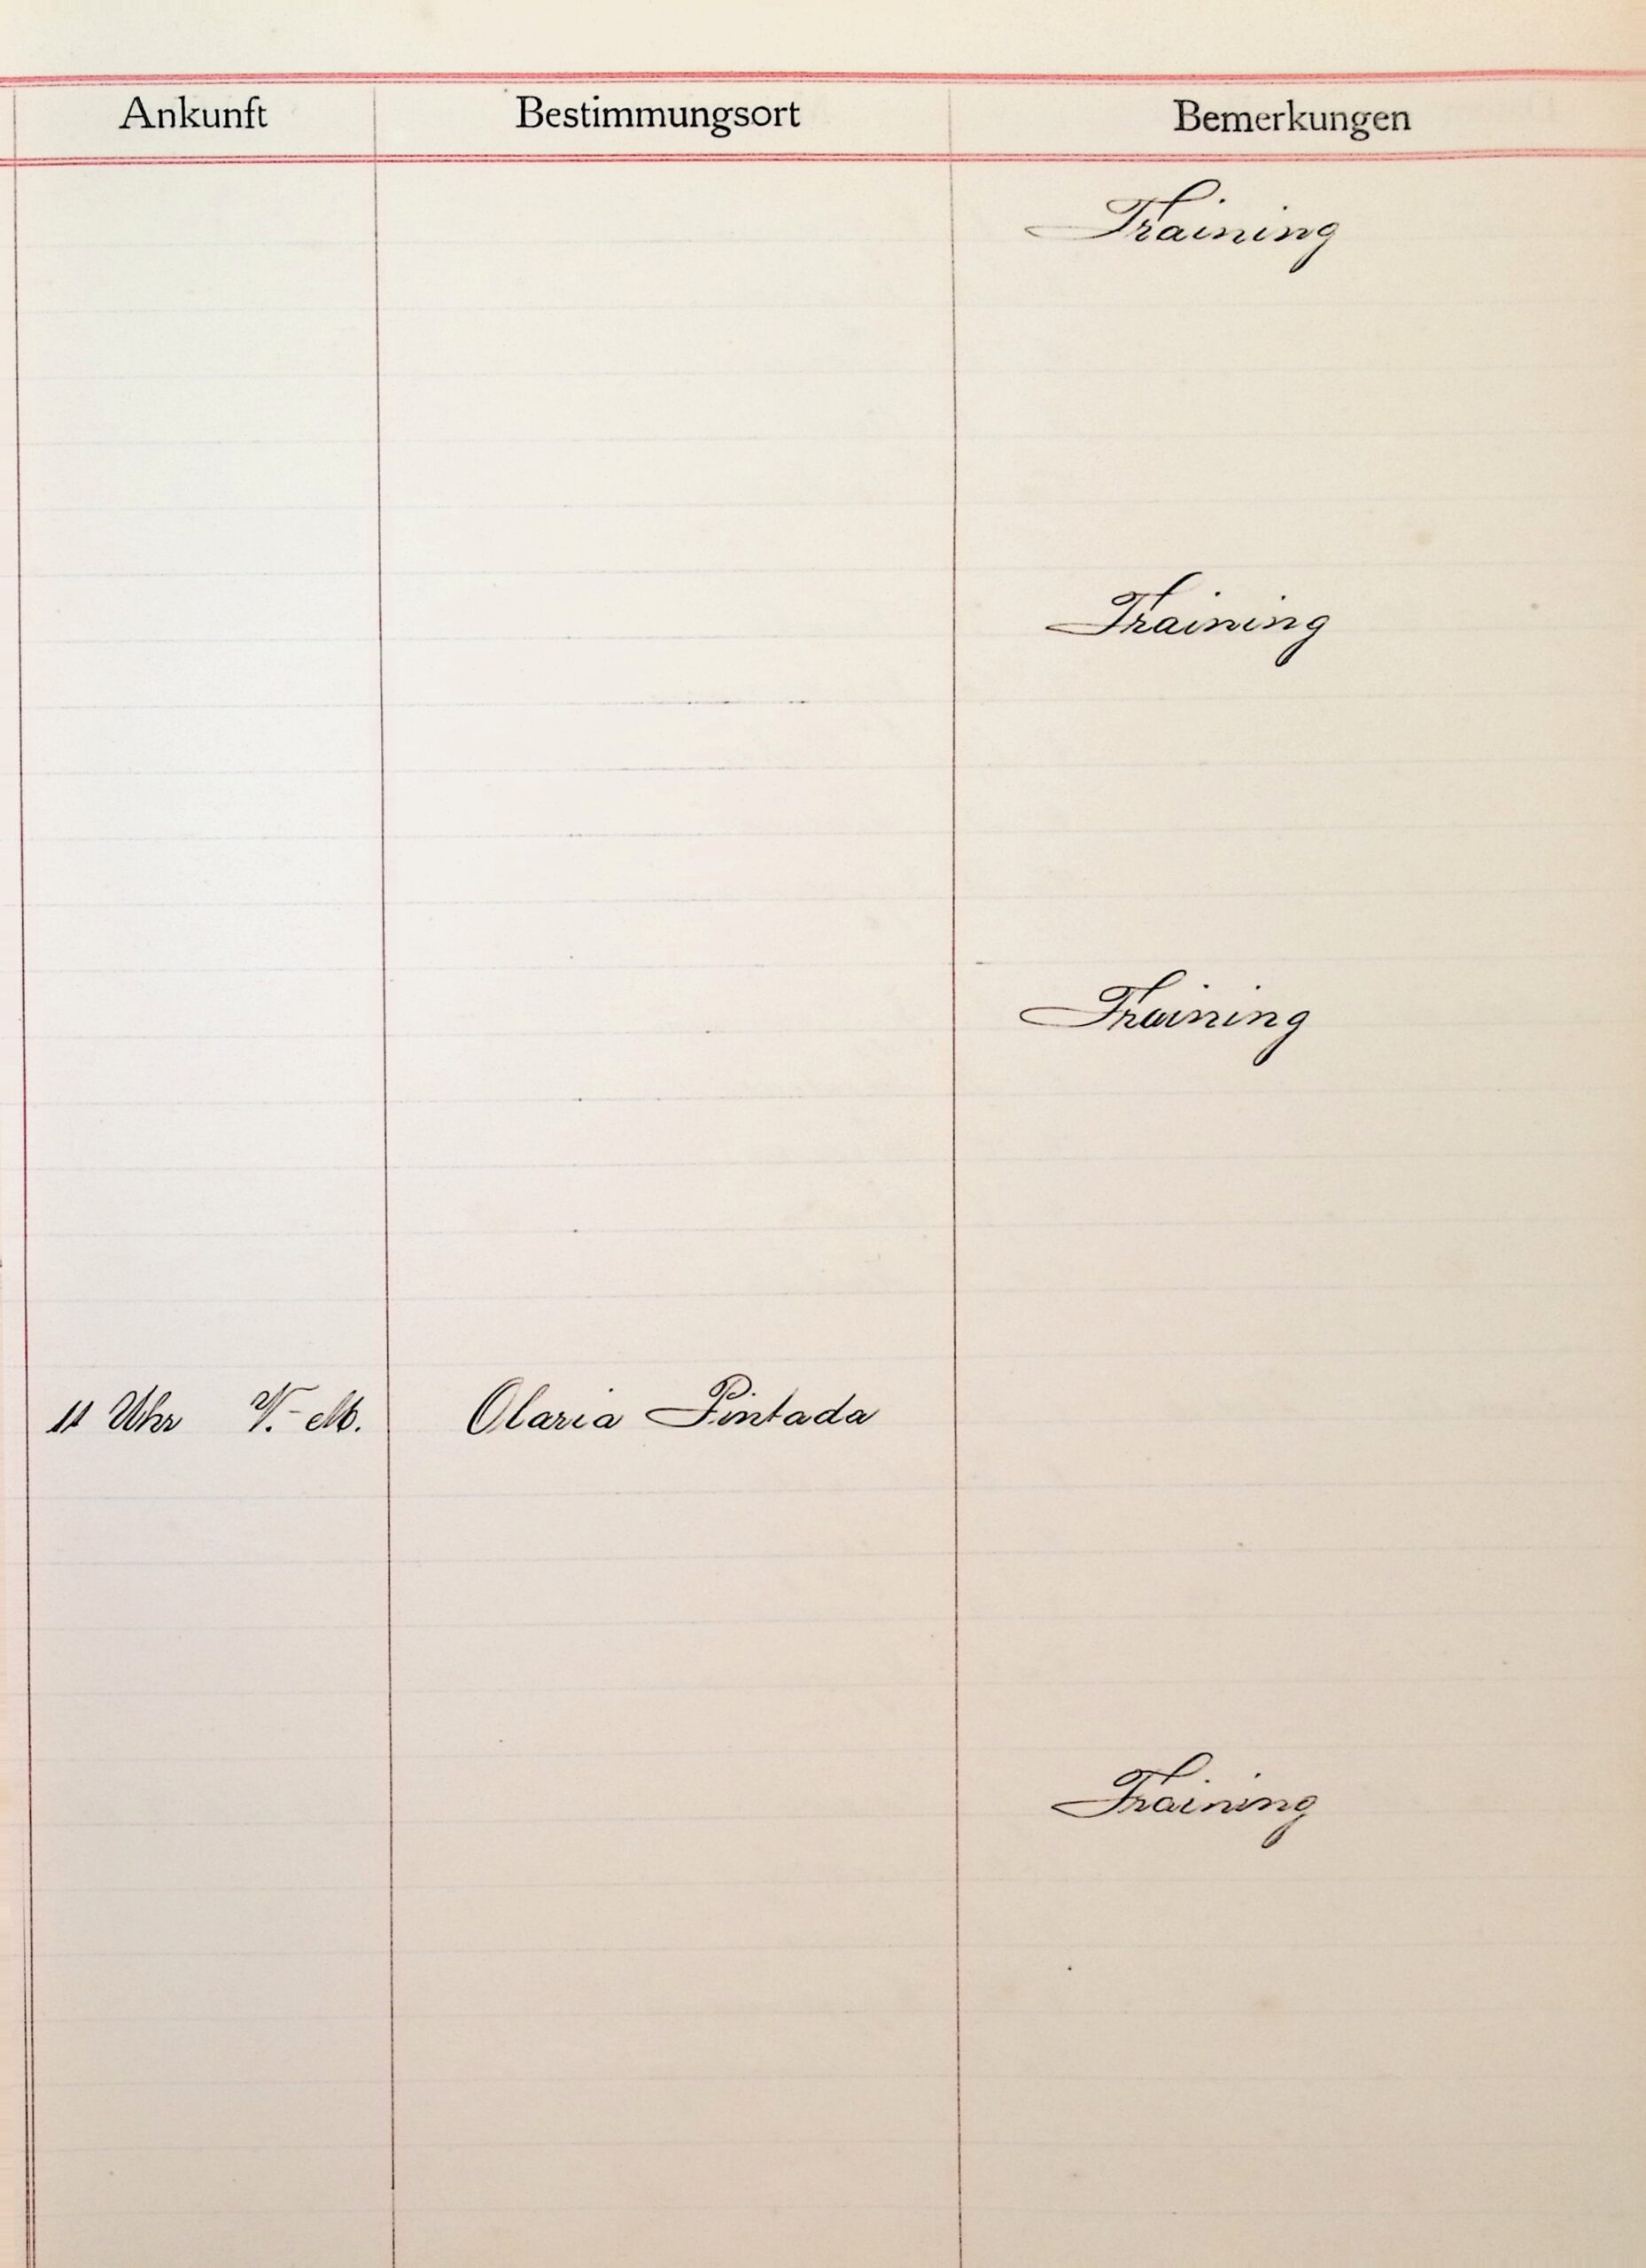 Ankunft Bestimmungsort Bemerkungen
Training
Training
Training
11 Uhr V.-M. Olaria Pintada
Training